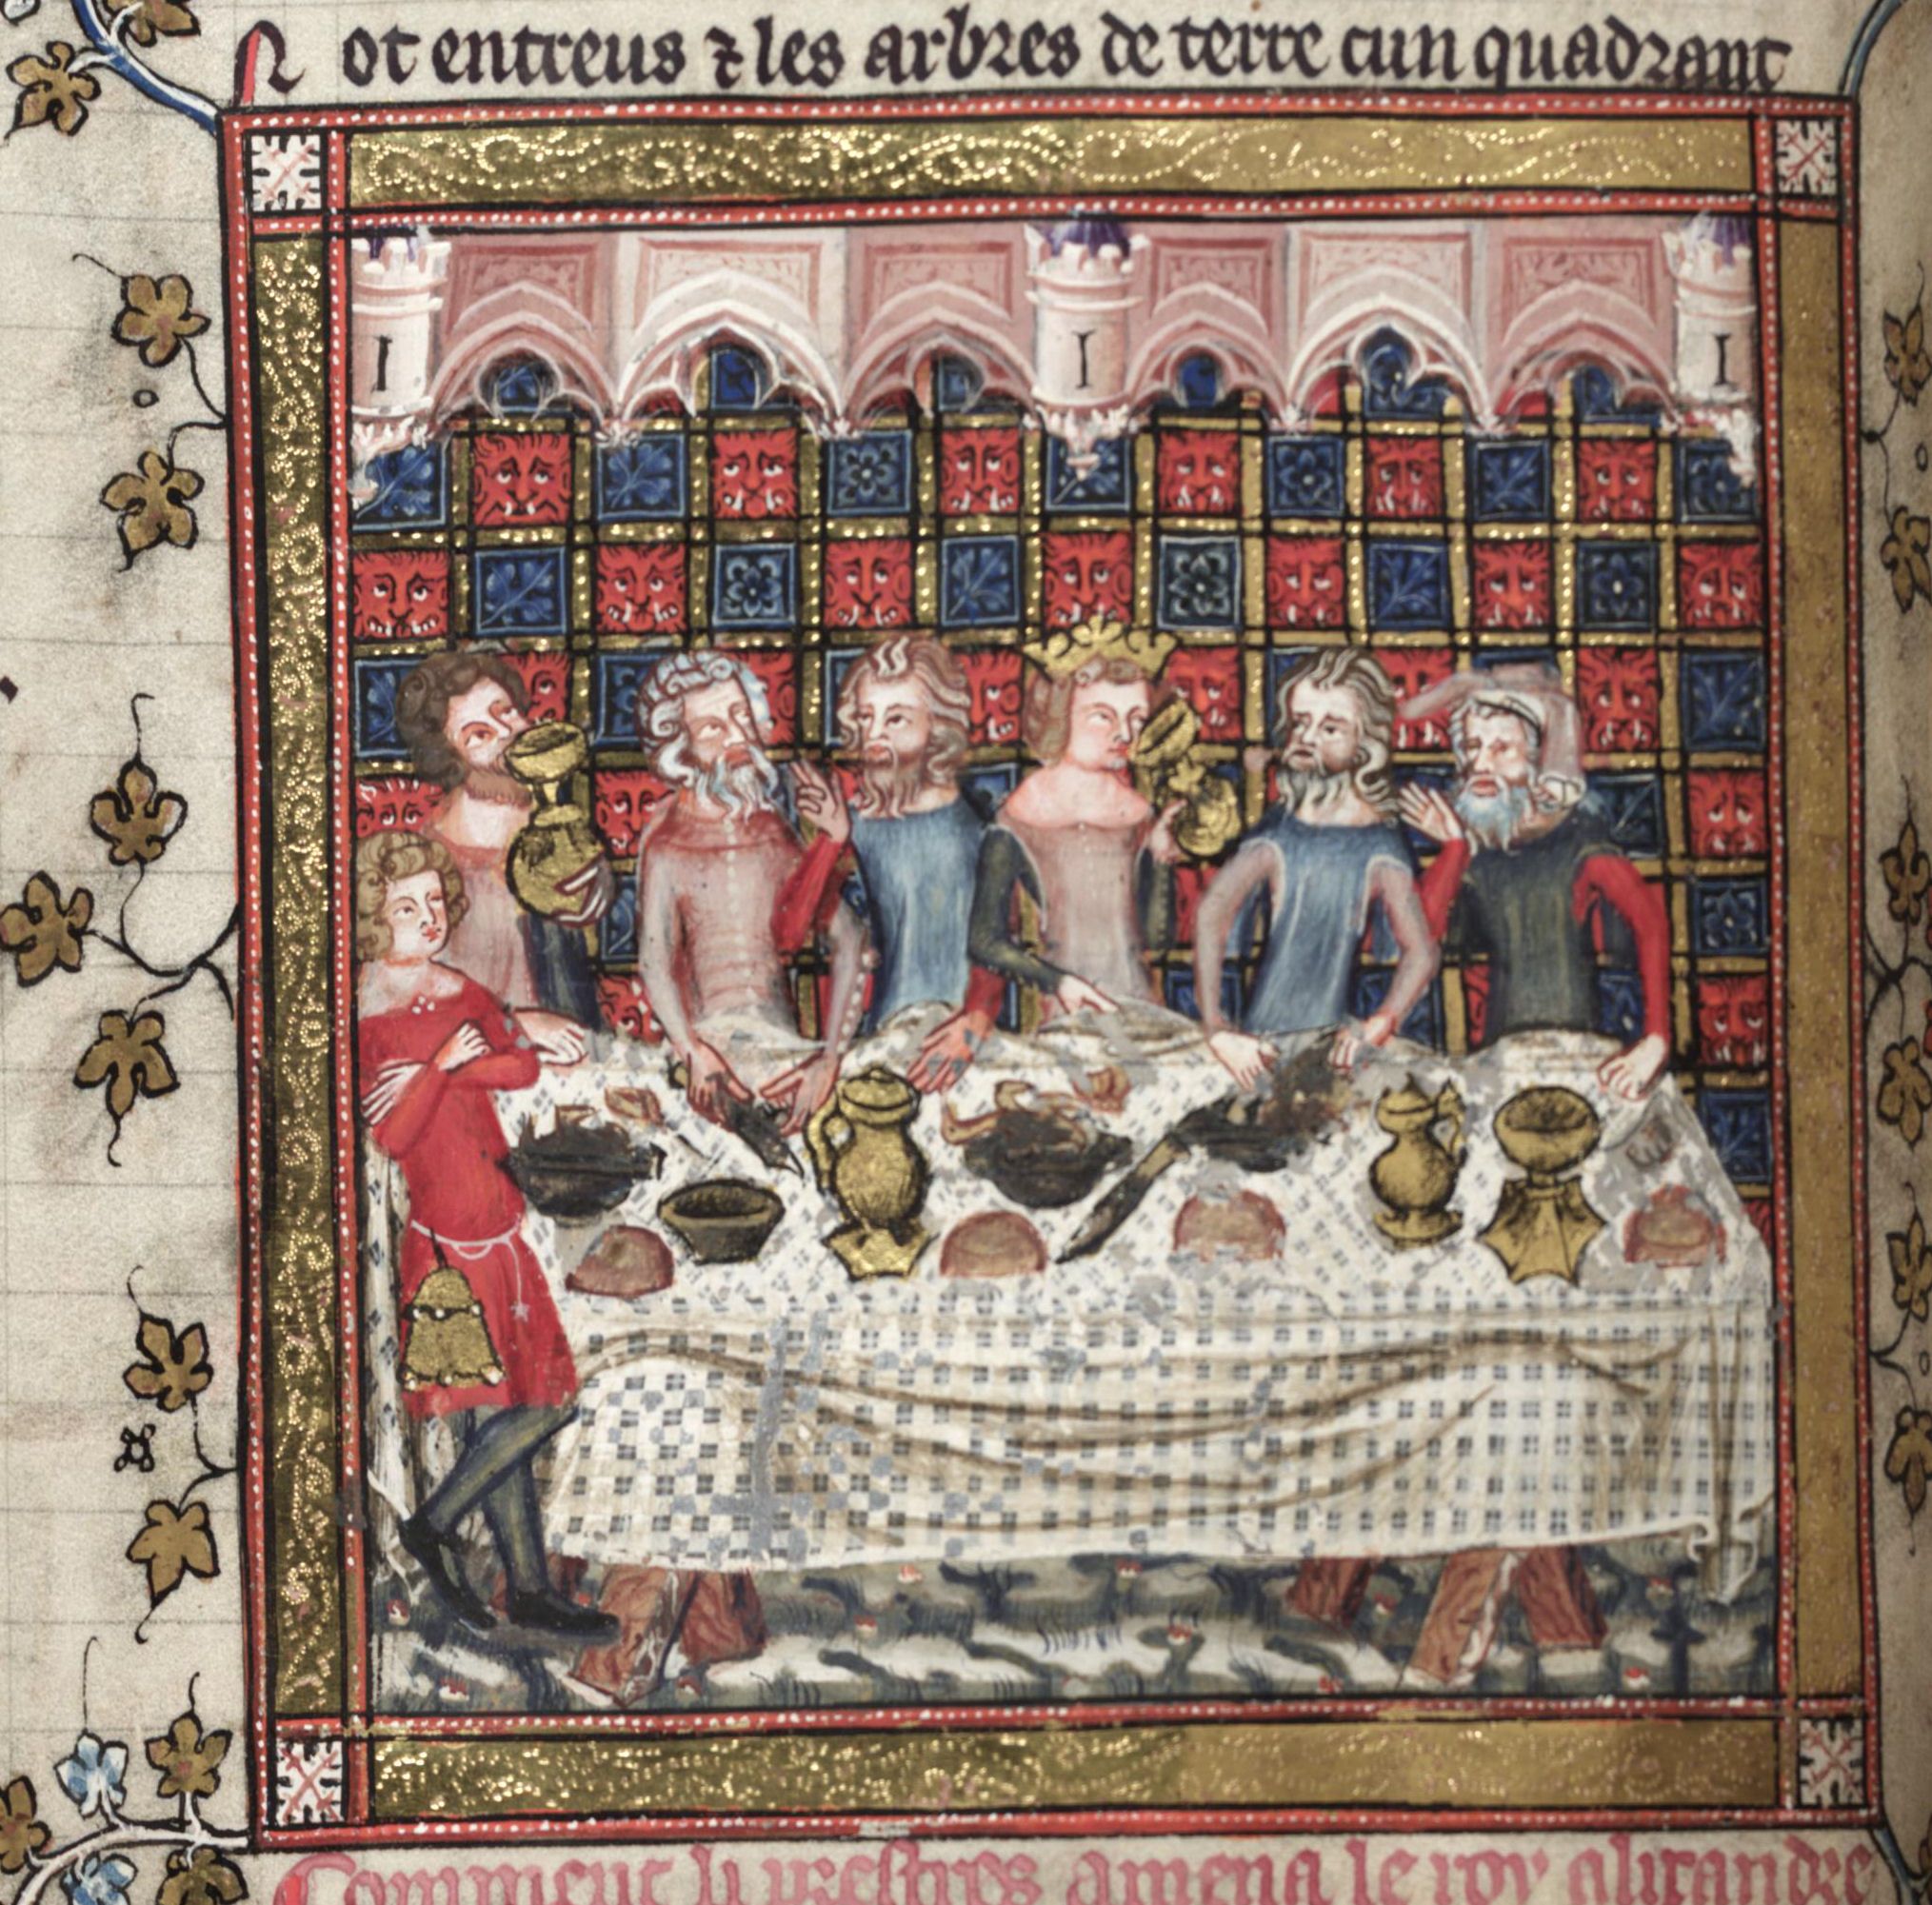 N ot entreus ⁊ les arbres de terre cun quadrant
I I I
Comment li prestres amena le roy alixandre